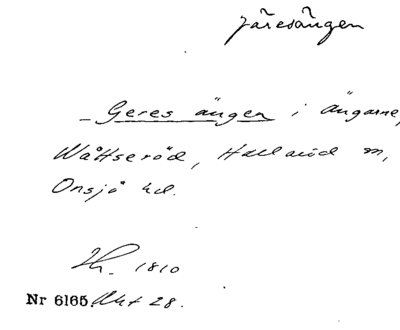 Järesängen
– Geres ängen i ängarne,
Wåttseröd, Hallaröd sn,
Onsjö hd.
Lh. 1810
Nr 6165. Akt 28.